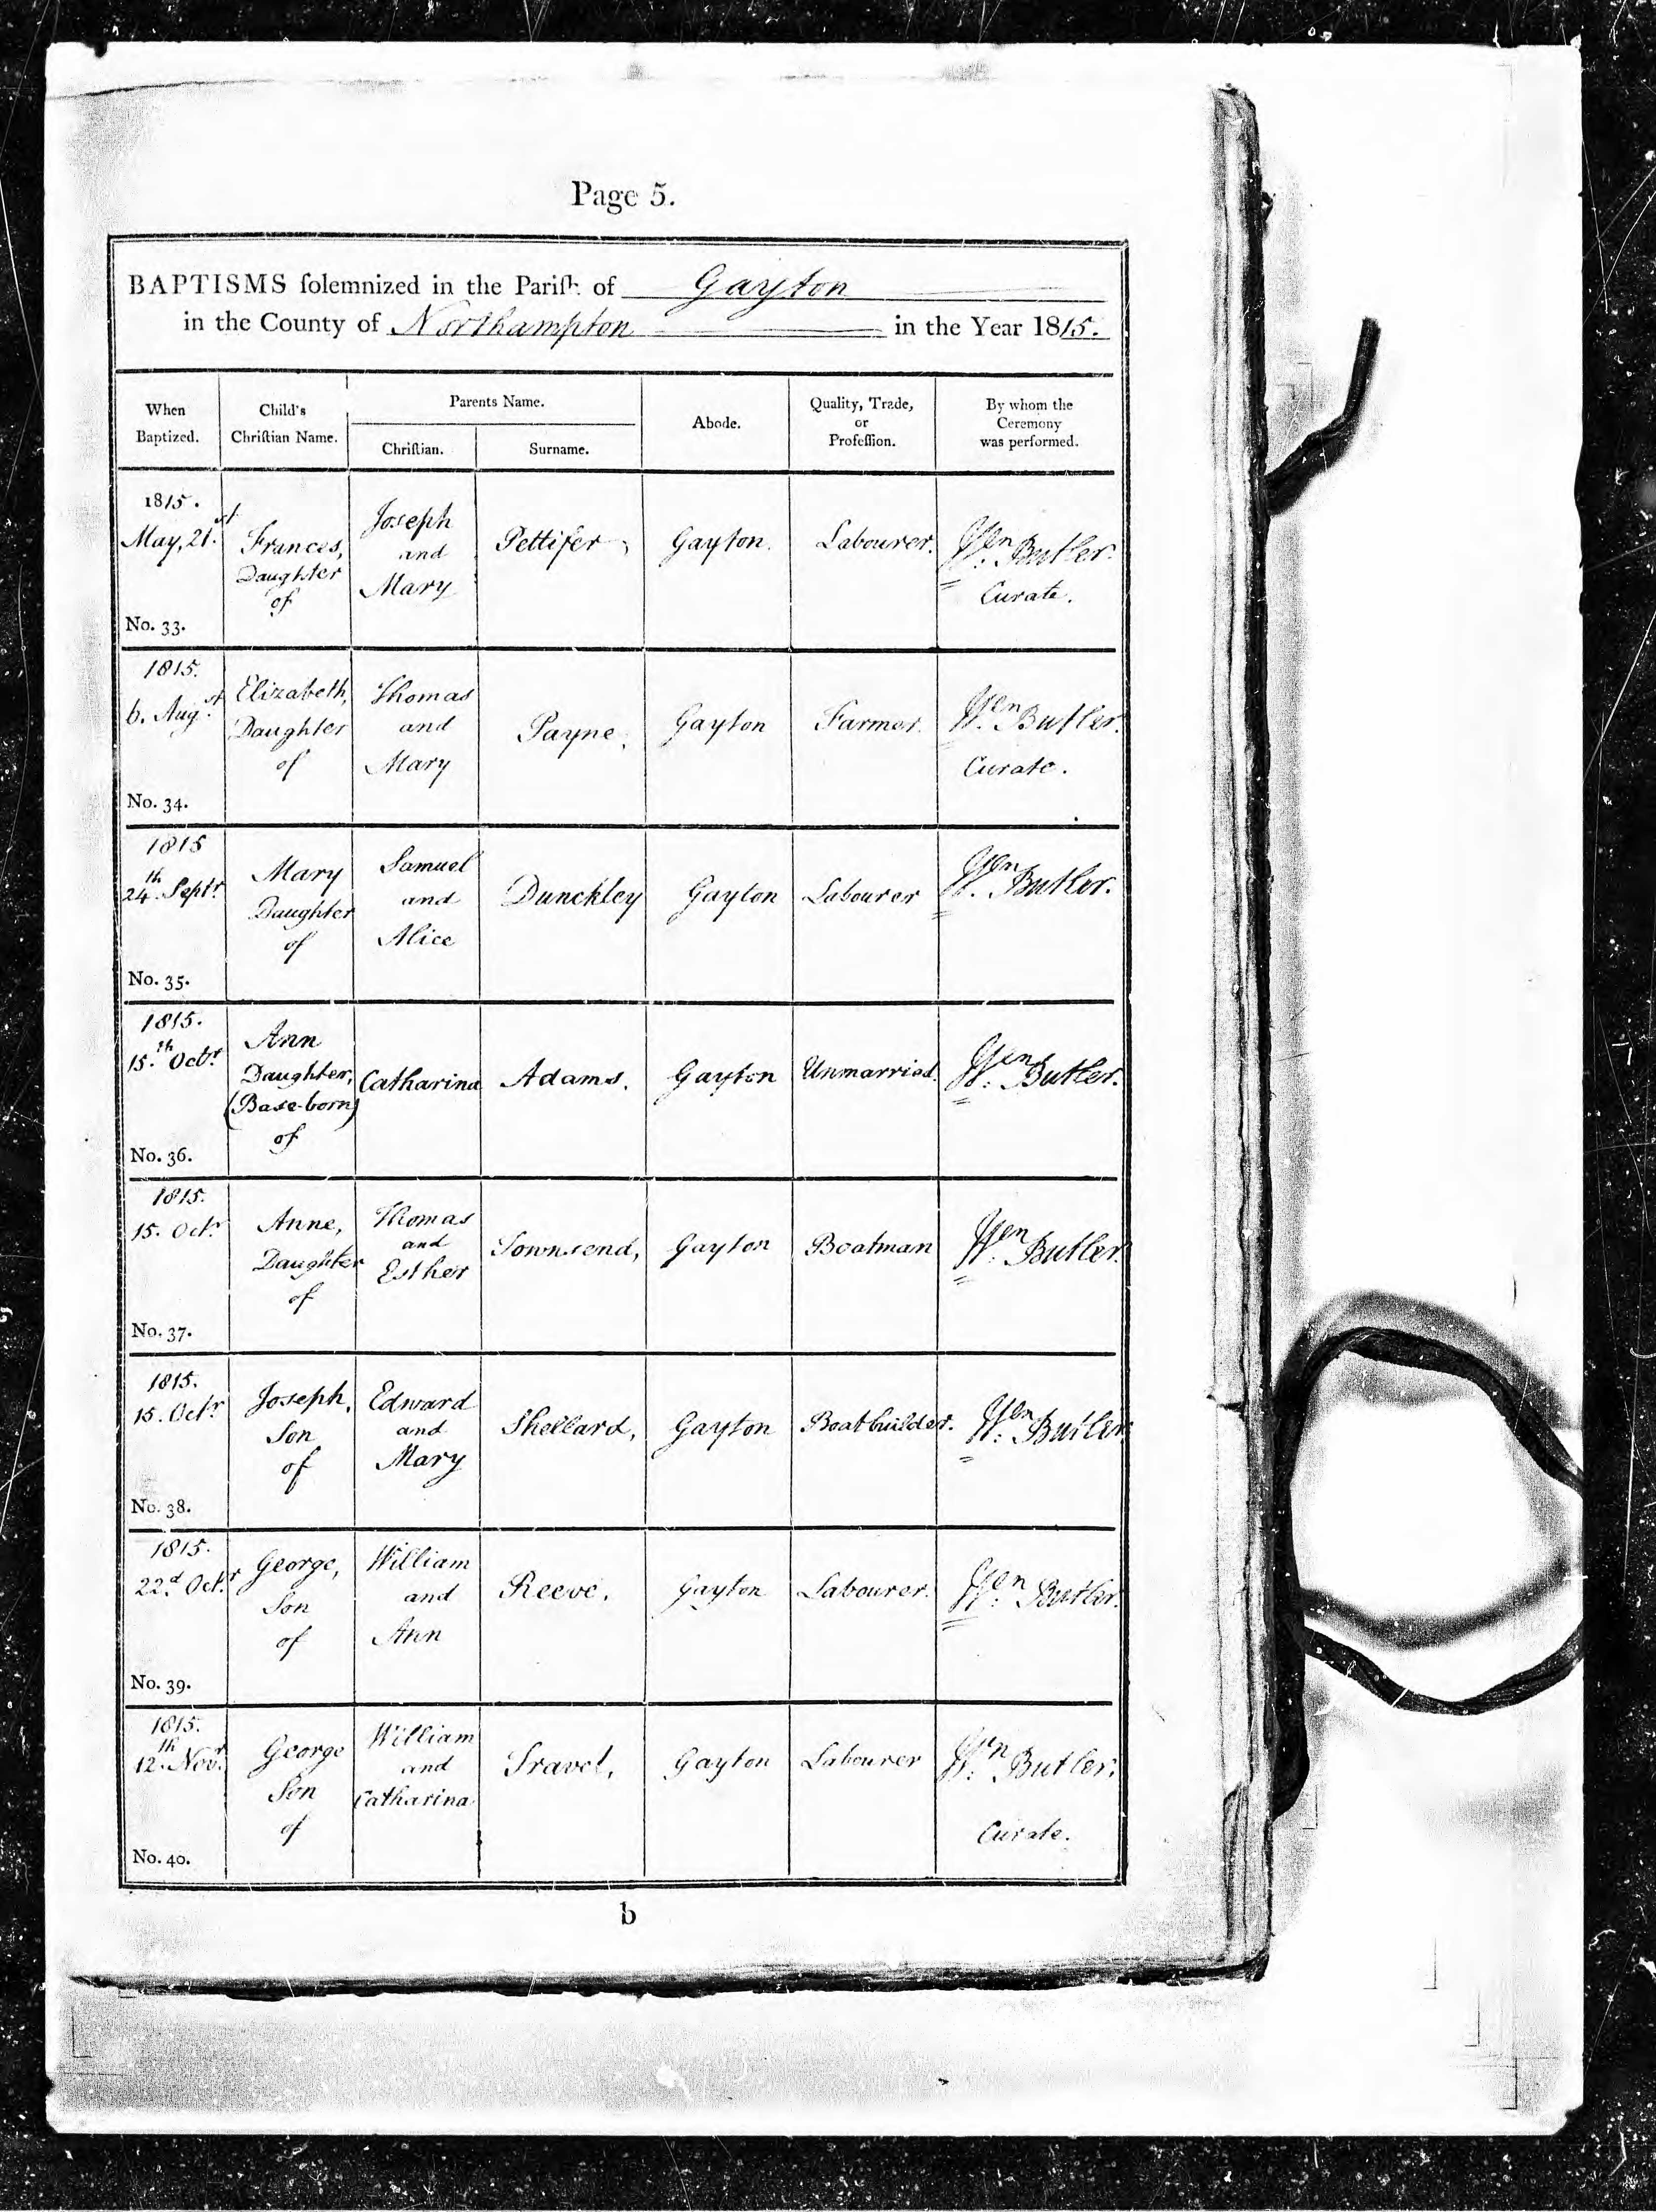 Page 5.
BAPTISMS ſolemnized in the Pariſh of Gayton
in the County of Northampton in the Year 1815.
When Baptized.
Child's Chriſtian Name.
Parents Name.
Chriſtian.
Surname.
Abode.
Quality, Trade, or Profeſſion.
By whom the Ceremony was performed.
1815.
May, 21.st
No. 33.
Frances,
Daughter
of
Joseph
and
Mary
Pettifer,
Gayton.
Labourer.
Butler.
Curate.
1815.
6. Augst
No. 34.
Elizabeth,
Daughter
of
Thomas
and
Mary
Payne,
Gayton
Farmer.
Butler.
Curate.
1815
24th Septr
No. 35.
Mary
Daughter
of
Samuel
and
Alice
Dunckley
Gayton
Labourer
Butler.
1815.
15.th Octr
No. 36.
Ann
Daughter,
(Base-born)
of
Catharina
Adams.
Gayton
Unmarried.
Butler.
1815.
15. Octr
No. 37.
Anne,
Daughter
of
Thomas
and
Esther
Townsend,
Gayton
Boatman
Butler.
1815.
15. Octr
No. 38.
Joseph,
Son
of
Edward
and
Mary
Shellard,
Gayton
Boatbuilder.
Butler
1815.
22.d Octr
No. 39.
George,
Son
of
William
and
Ann
Reeve.
Gayton
Labourer.
Butler.
1815.
12.th Novr
No. 40.
George
Son
of
William
and
Catharina
Gayton
Labourer
Butler.
Curate.
b